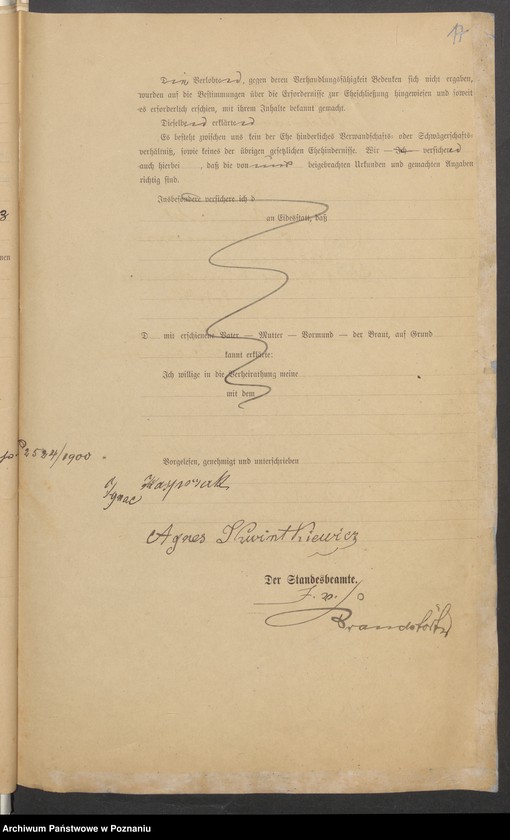 17
Die Verlobten, gegen deren Verhandlungsfähigkeit Bedenken sich nicht ergaben,
wurden auf die Bestimmungen über die Erfordernisse zur Eheschließung hingewiesen und soweit
es erforderlich erschien, mit ihrem Inhalte bekannt gemacht.
Dieselben erklärten
Es besteht zwischen uns kein der Ehe hinderliches Verwandschafts- oder Schwägerschafts-
verhältniß, sowie keines der übrigen gesetzlichen Ehehindernisse. Wir — Ich — versichern
auch hierbei , daß die von uns beigebrachten Urkunden und gemachten Angaben
richtig sind.
Insbesondere versichere ich d
an Eidesstatt, daß
D mit erschienene Vater — Mutter — Vormund — der Braut, auf Grund
kannt erklärte:
Ich willige in die Verheirathung meine
mit dem
2584/1900
Vorgelesen, genehmigt und unterschrieben
Ignac
Agnes Kwintkiewicz
Der Standesbeamte.
J. V.
Archiwum Państwowe w Poznaniu